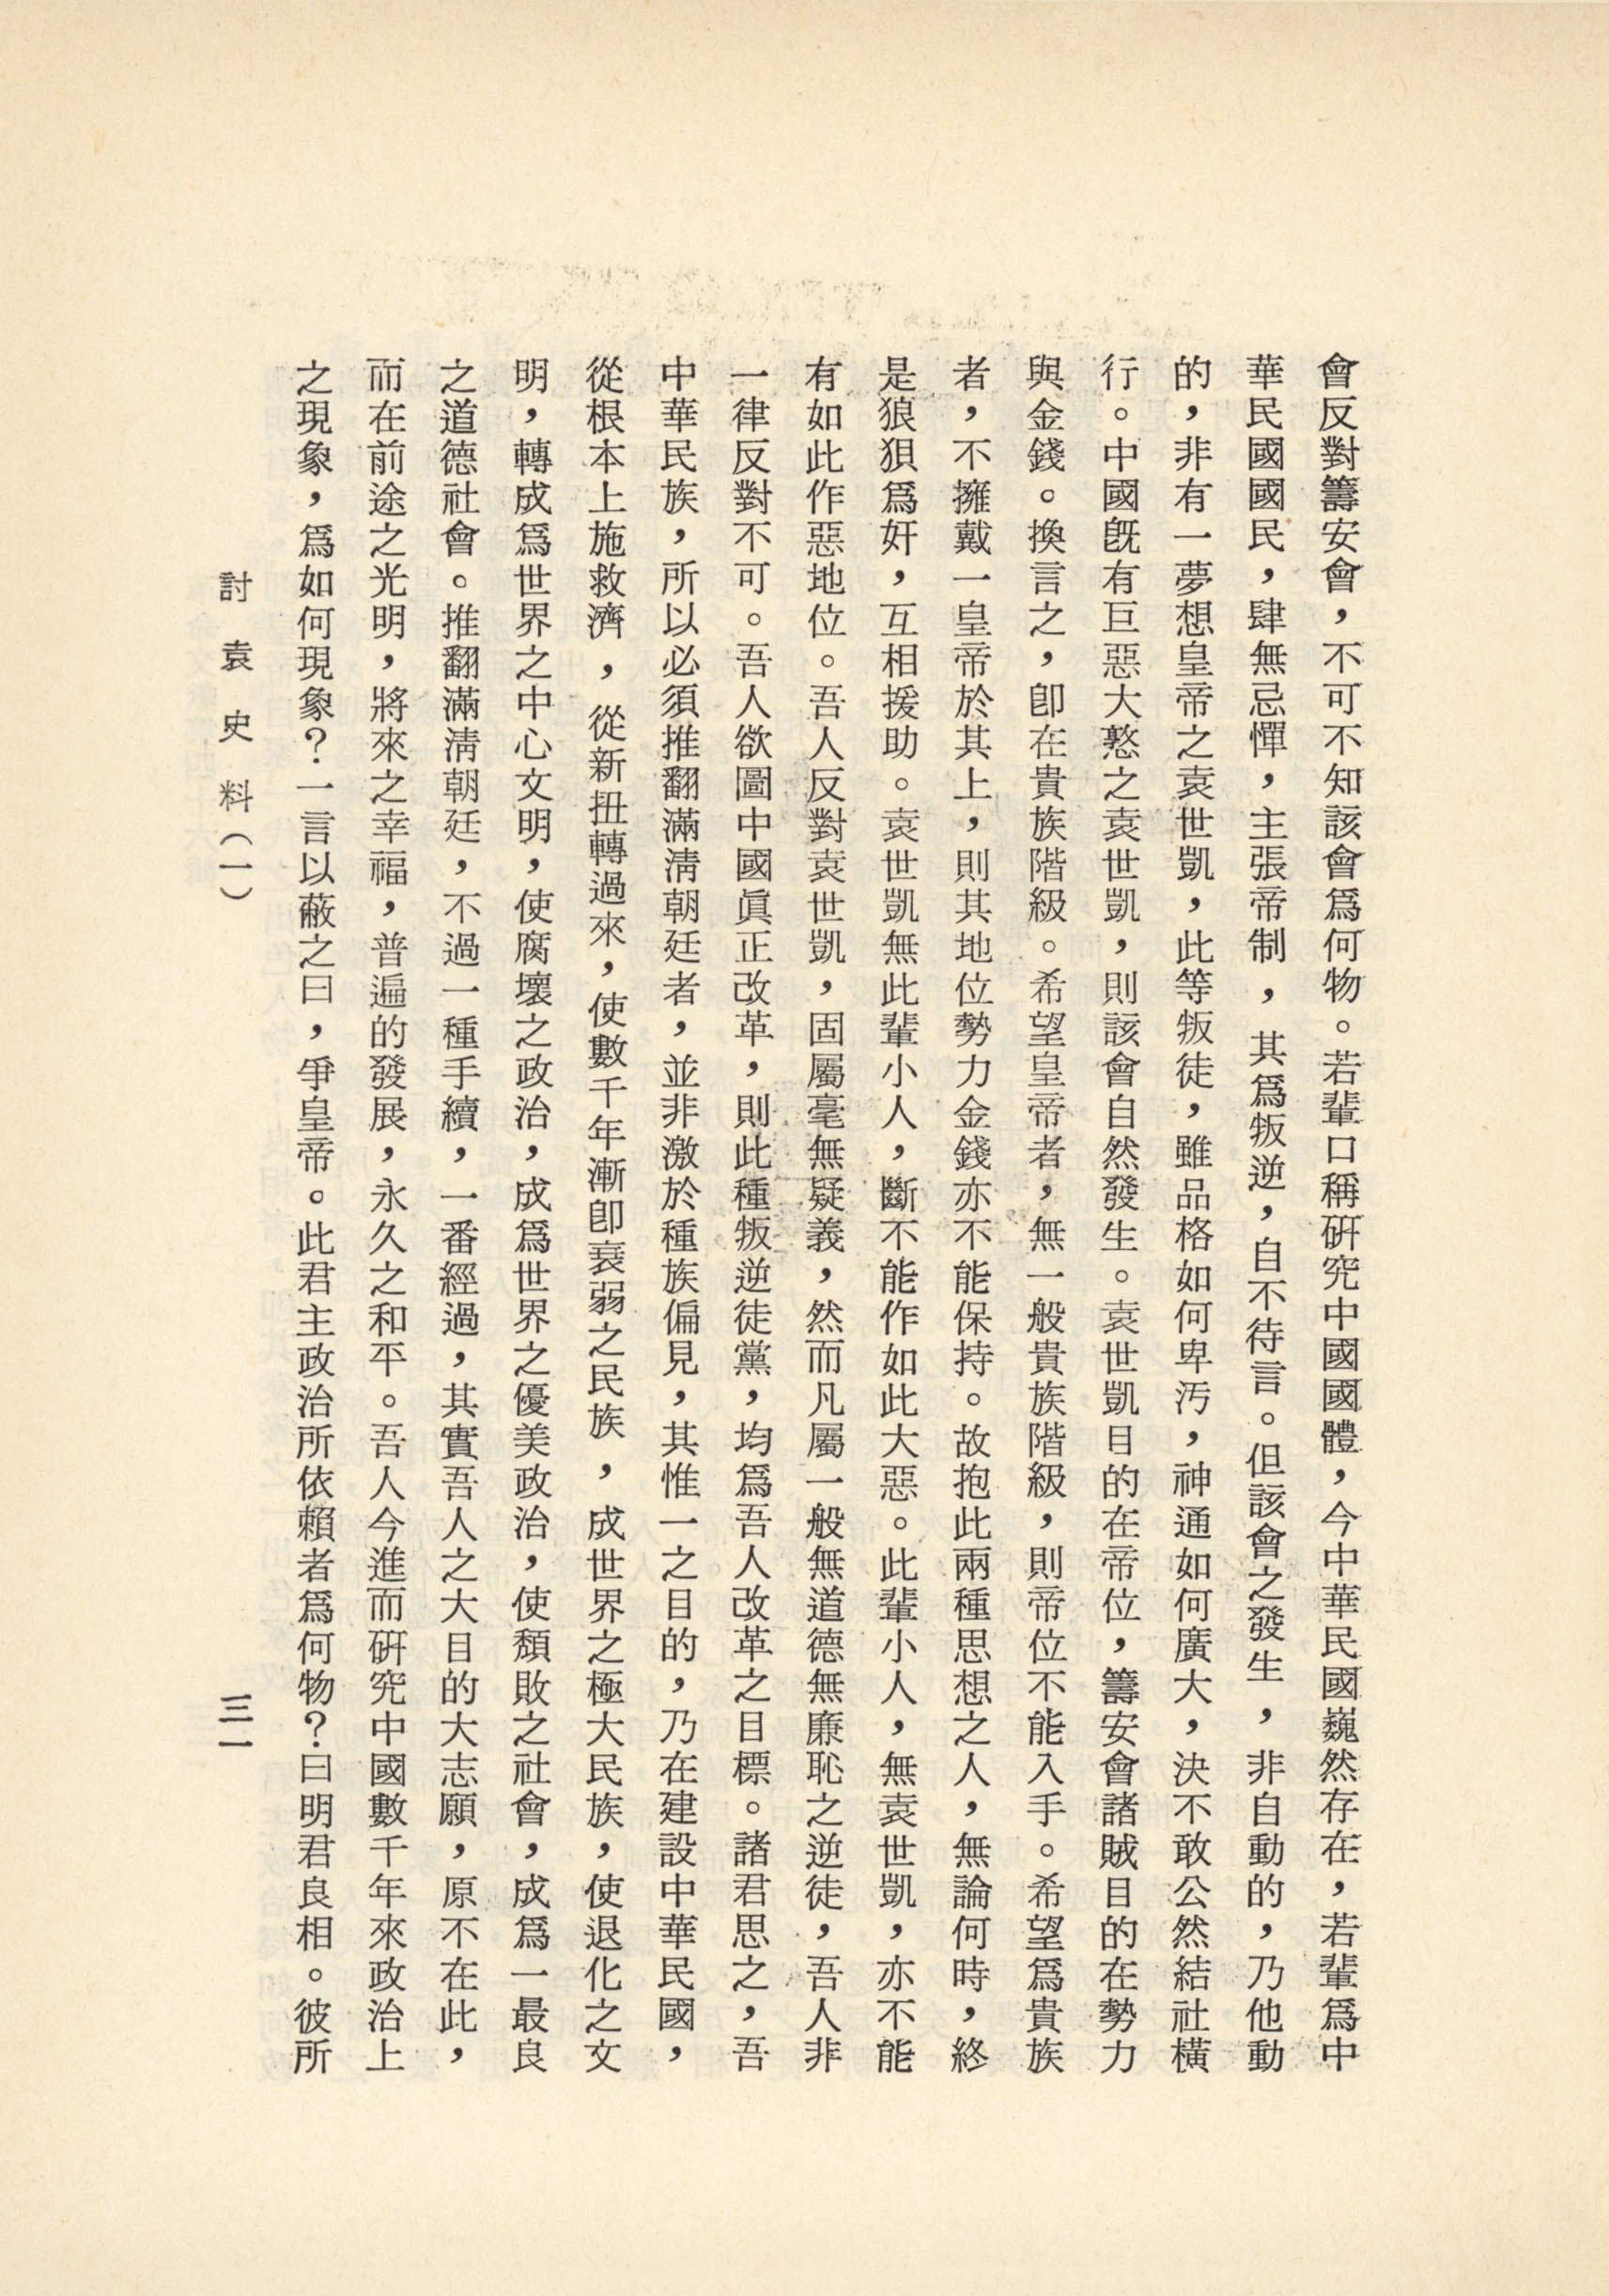 會反對籌安會，不可不知該會爲何物。若輩口稱硏究中國國體，今中華民國巍然存在，若輩爲中
華民國國民，肆無忌憚，主張帝制，其爲叛逆，自不待言。但該會之發生，非自動的，乃他動
的，非有一夢想皇帝之袁世凱，此等叛徒，雖品格如何卑汚，神通如何廣大，決不敢公然結社橫
行。中國旣有巨惡大憝之袁世凱，則該會自然發生。袁世凱目的在帝位，籌安會諸賊目的在勢力
與金錢。換言之，卽在貴族階級。希望皇帝者，無一般貴族階級，則帝位不能入手。希望爲貴族
者，不擁戴一皇帝於其上，則其地位勢力金錢亦不能保持。故抱此兩種思想之人，無論何時，終
是狼狽爲奸，互相援助。袁世凱無此輩小人，斷不能作如此大惡。此輩小人，無袁世凱，亦不能
有如此作惡地位。吾人反對袁世凱，固屬毫無疑義，然而凡屬一般無道德無廉恥之逆徒，吾人非
一律反對不可。吾人欲圖中國眞正改革，則此種叛逆徒黨，均爲吾人改革之目標。諸君思之，吾
中華民族，所以必須推翻滿淸朝廷者，並非激於種族偏見，其惟一之目的，乃在建設中華民國，
從根本上施救濟，從新扭轉過來，使數千年漸卽衰弱之民族，成世界之極大民族，使退化之文
明，轉成爲世界之中心文明，使腐壞之政治，成爲世界之優美政治，使頹敗之社會，成爲一最良
之道德社會。推翻滿淸朝廷，不過一種手續，一番經過，其實吾人之大目的大志願，原不在此，
而在前途之光明，將來之幸福，普遍的發展，永久之和平。吾人今進而硏究中國數千年來政治上
之現象，爲如何現象？一言以蔽之曰，爭皇帝。此君主政治所依賴者爲何物？曰明君良相。彼所
討袁史料（一）
三一